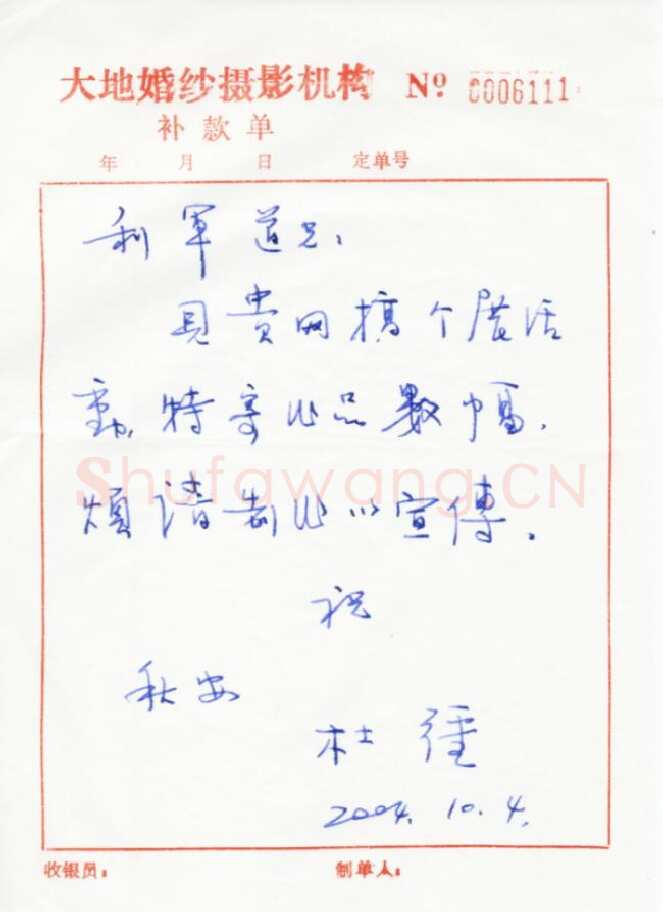 大地婚纱摄影机构 Nº 0006111
补款单
年 月 日 定单号
利軍道兄：
見貴网搞个展活
動，特寄作品數幅，
煩請制作以宣傳。
祝
秋安
杜
2004.10.4.
Shufawang.CN
收银员：
制单人：